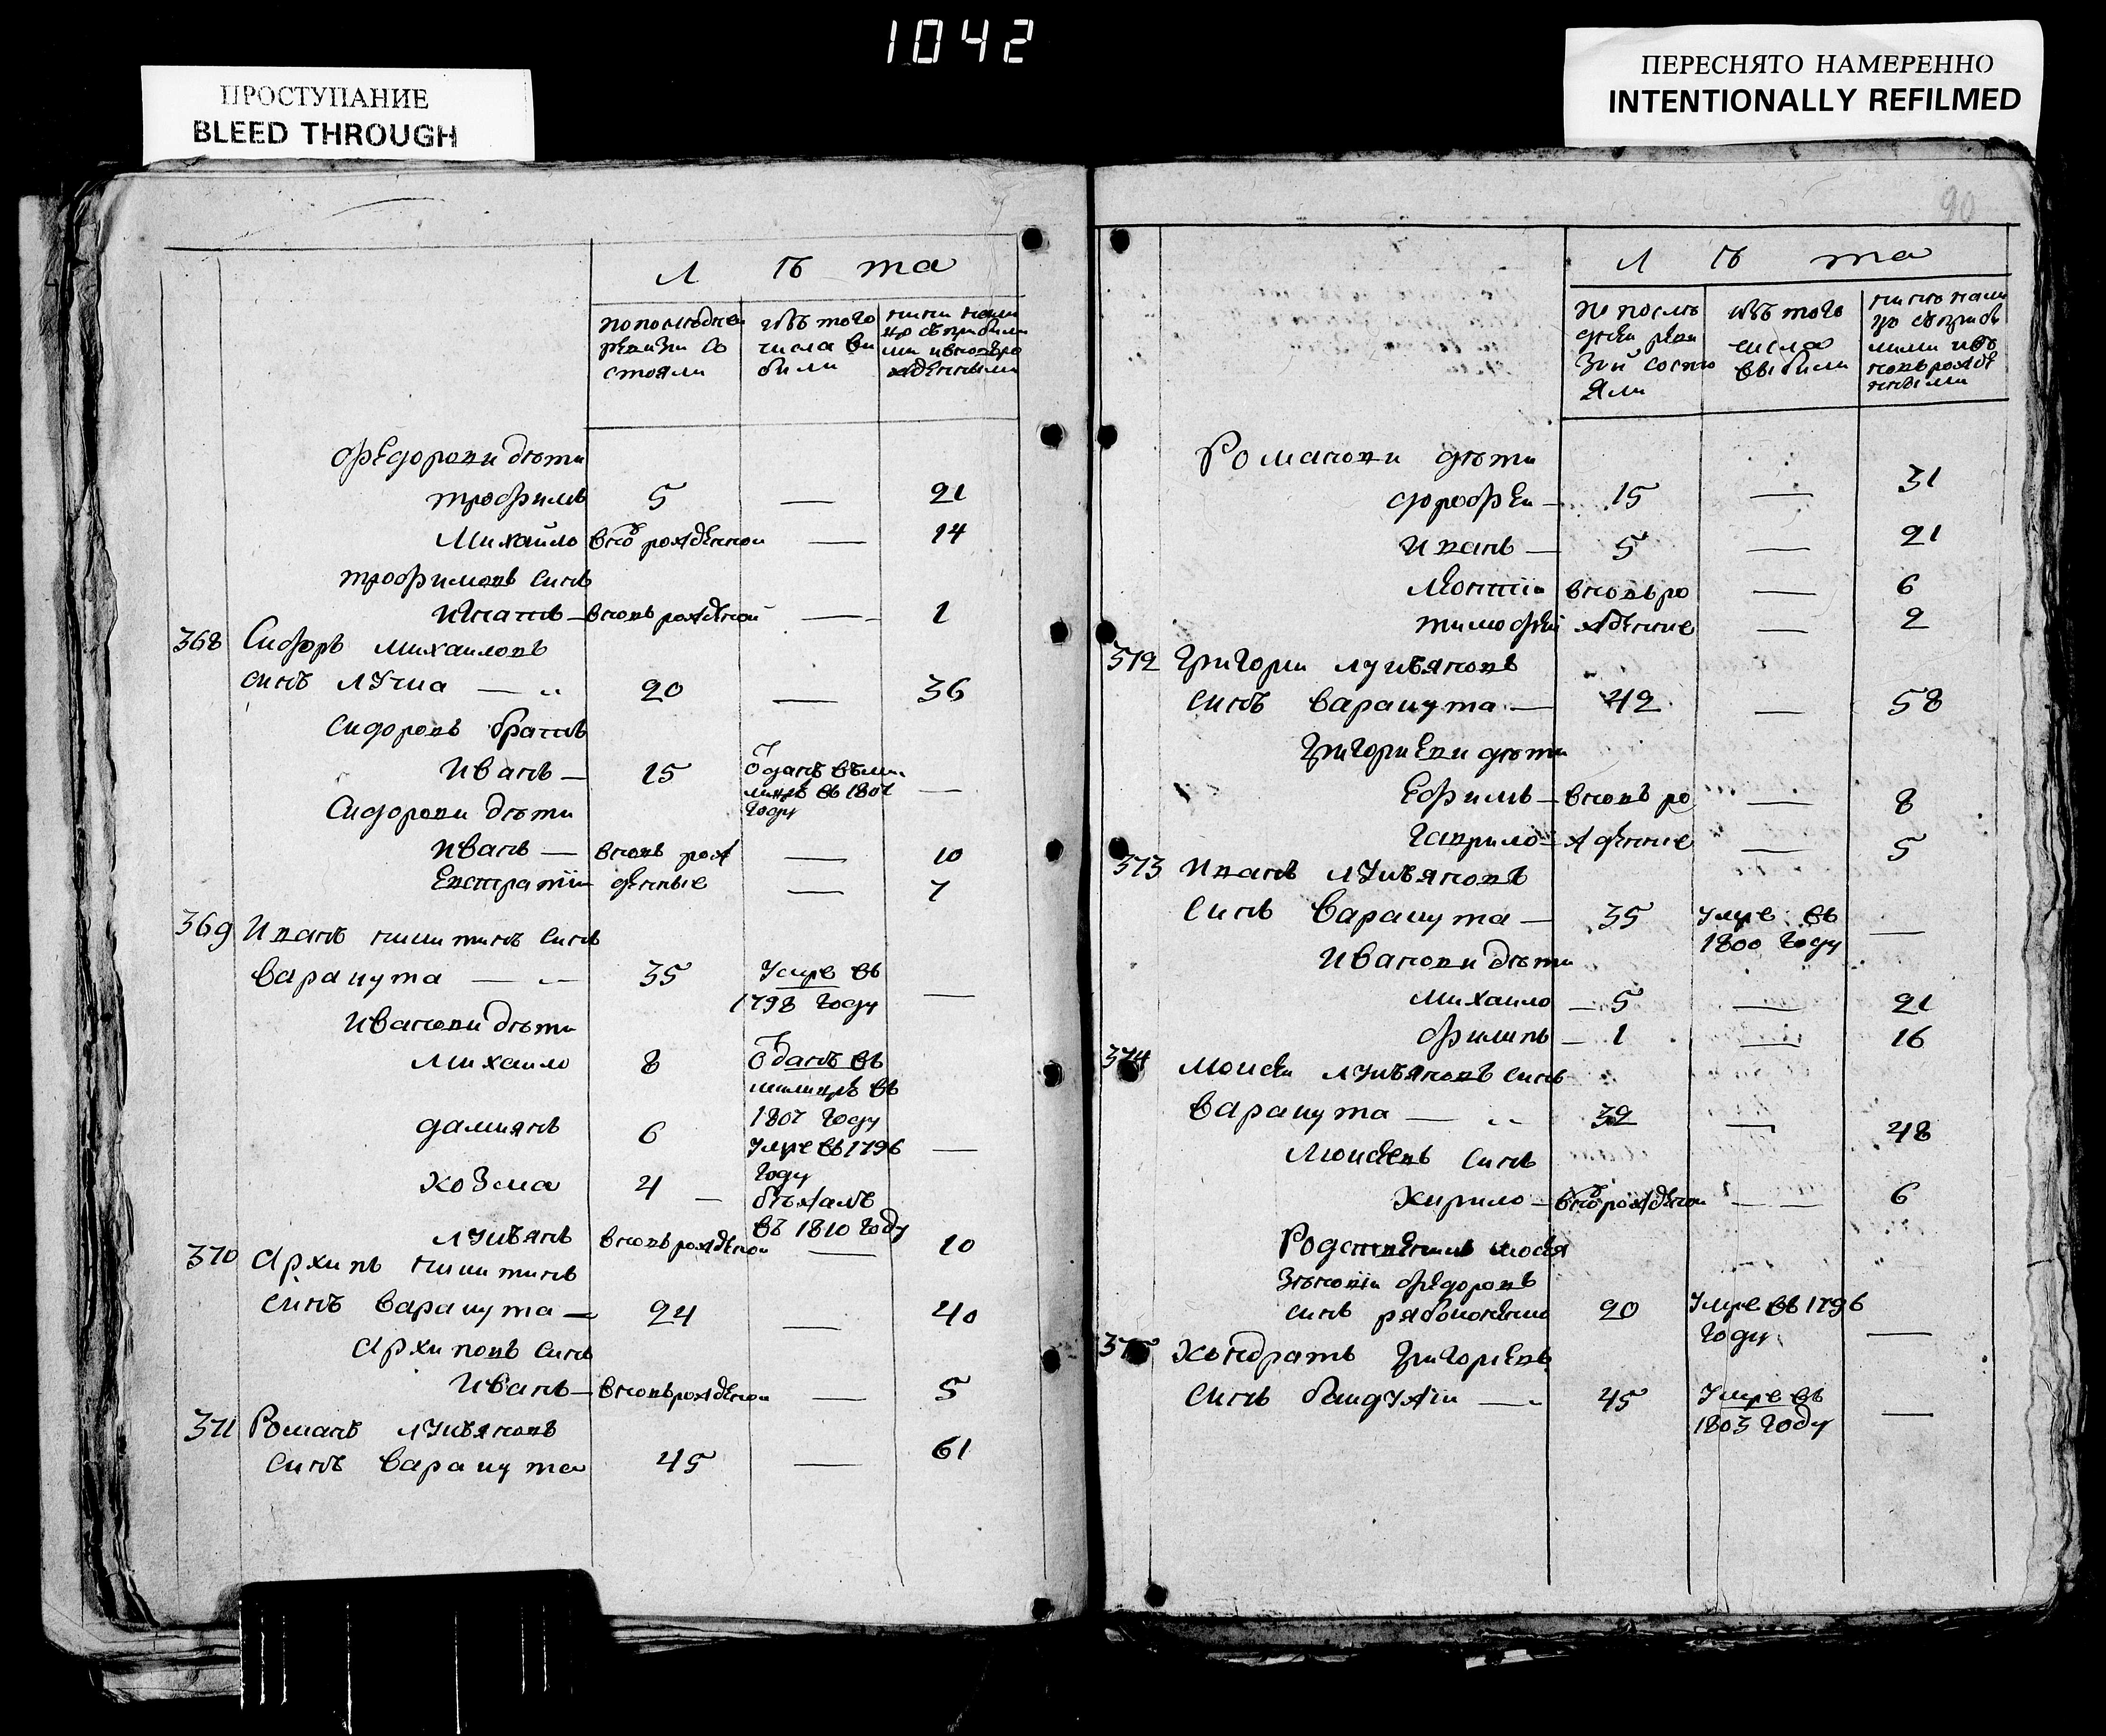 1042
ПРОСТУПАНИЕ
BLEED THROUGH
ПЕРЕСНЯТО НАМЕРЕННО
INTENTIONALLY REFILMED
Л ѣ та
по последнеи ревизи со стояли
изъ того числа вы были
Федорови дѣти
трофимъ 5 — 21
Михайло вновь рожденнои — 14
трофимовъ синъ
Игнатъ — вновь рожденой — 1
368 Сидоръ михаиловъ
синъ лучка — 20 — 36
Сидоровъ братъ
Иванъ — 15 Отданъ въ мили
лицѣ въ 1807 —
году
Сидорови дѣти
Иванъ — вновь рож — 10
Евстратїи денные — 7
369 Иванъ никитинъ синъ
варакута — 35 Умре въ
1798 году —
Иванови дѣти
михаило 8 Отданъ въ
милицѣ въ
1807 году
дамиянъ 6 Умре въ 1796 —
году
козма 4 — бѣжалъ
въ 1810 году
лукъянъ вновь рожденои — 10
370 Архипъ никитинъ
синъ варакута — 24 — 40
Архиповъ синъ
Иванъ — вновь рожденои — 5
371 Романъ лукъяновъ
синъ варакута 45 — 61
90
Л ѣ та
по послѣ дней реви зий состо яли
изъ того числа выбили
Романови дѣти
дорофеи — 15 — 31
Иванъ — 5 — 21
Леонтїи вновь ро — 6
тимофей жденние — 2
372 Григории лукъяновъ
синъ варакута — 42 — 58
Григориеви дѣти
Ефимъ — вновь ро — 8
гаврило — жденние — 5
373 Иванъ лукъяновъ
синъ варакута — 35 Умре въ
1800 году —
Иванови дѣти
михаило — 5 — 21
филипъ — 1 — 16
374 Моисеи лукъяновъ синъ
варакута — 32 — 48
Моисеевъ синъ
кирило — вновь рожденои — 6
Родственникъ моисея
Зѣновїи Федоровъ
синъ рябоконенко 20 Умре въ 1796
году —
375 Кондратъ григориевъ
синъ 45 Умре въ
1803 году —